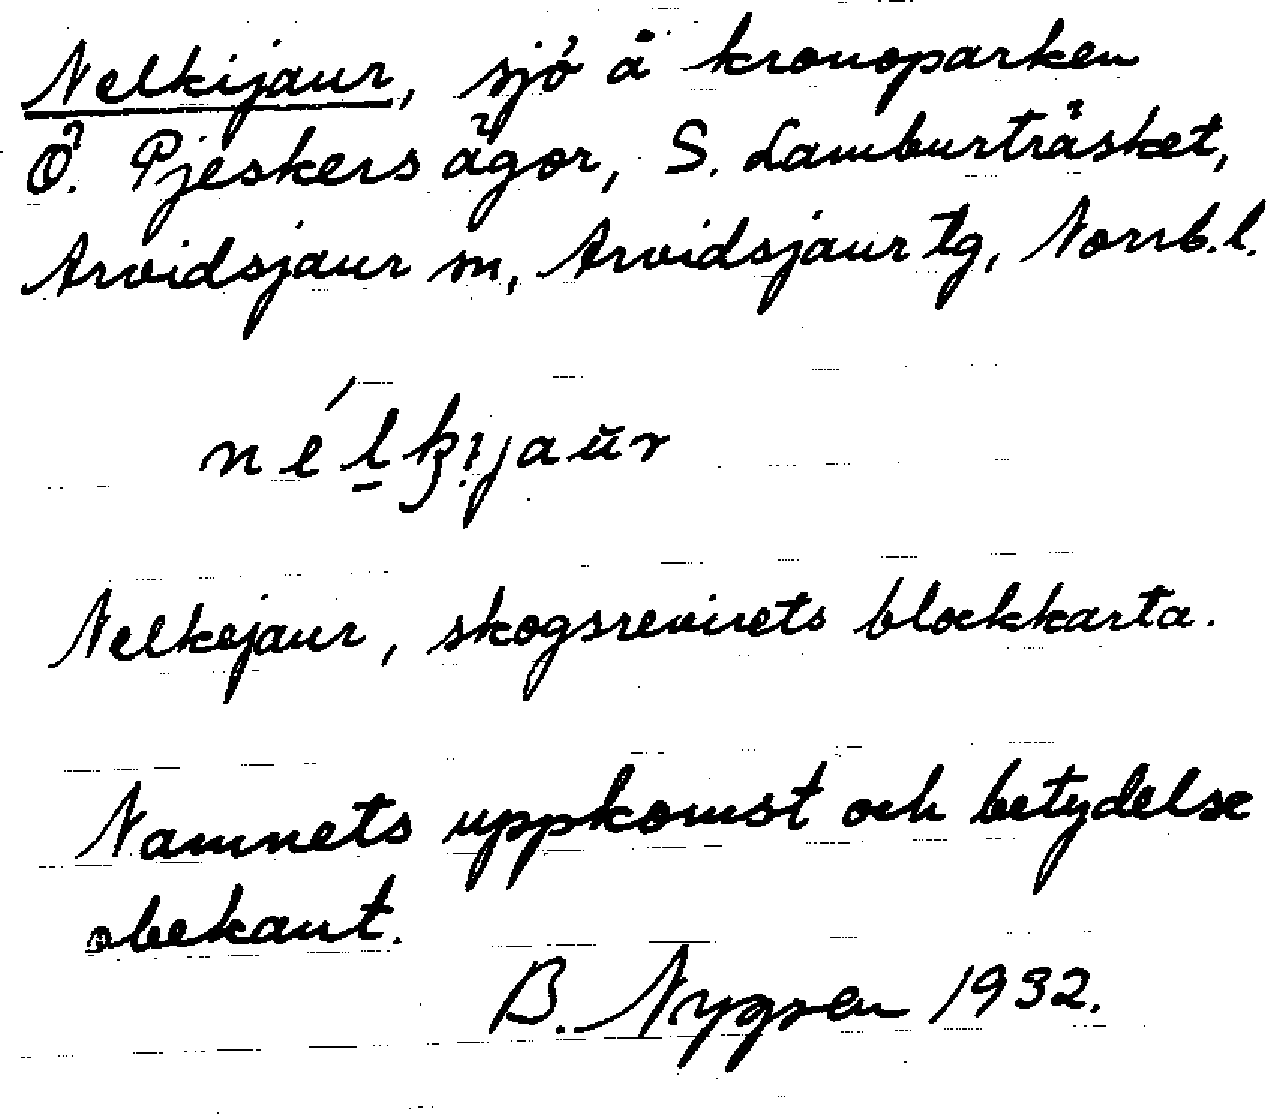 Nelkijaur, sjö å kronoparken
Ö. Pjeskers ägor, S. Lamburträsket,
Arvidsjaur sn, Arvidsjaur tg, Norrb.l.
nélkijaŭr
Nelkejaur, skogsrevirets blockkarta.
Namnets uppkomst och betydelse
obekant.
B. Nygren 1932.